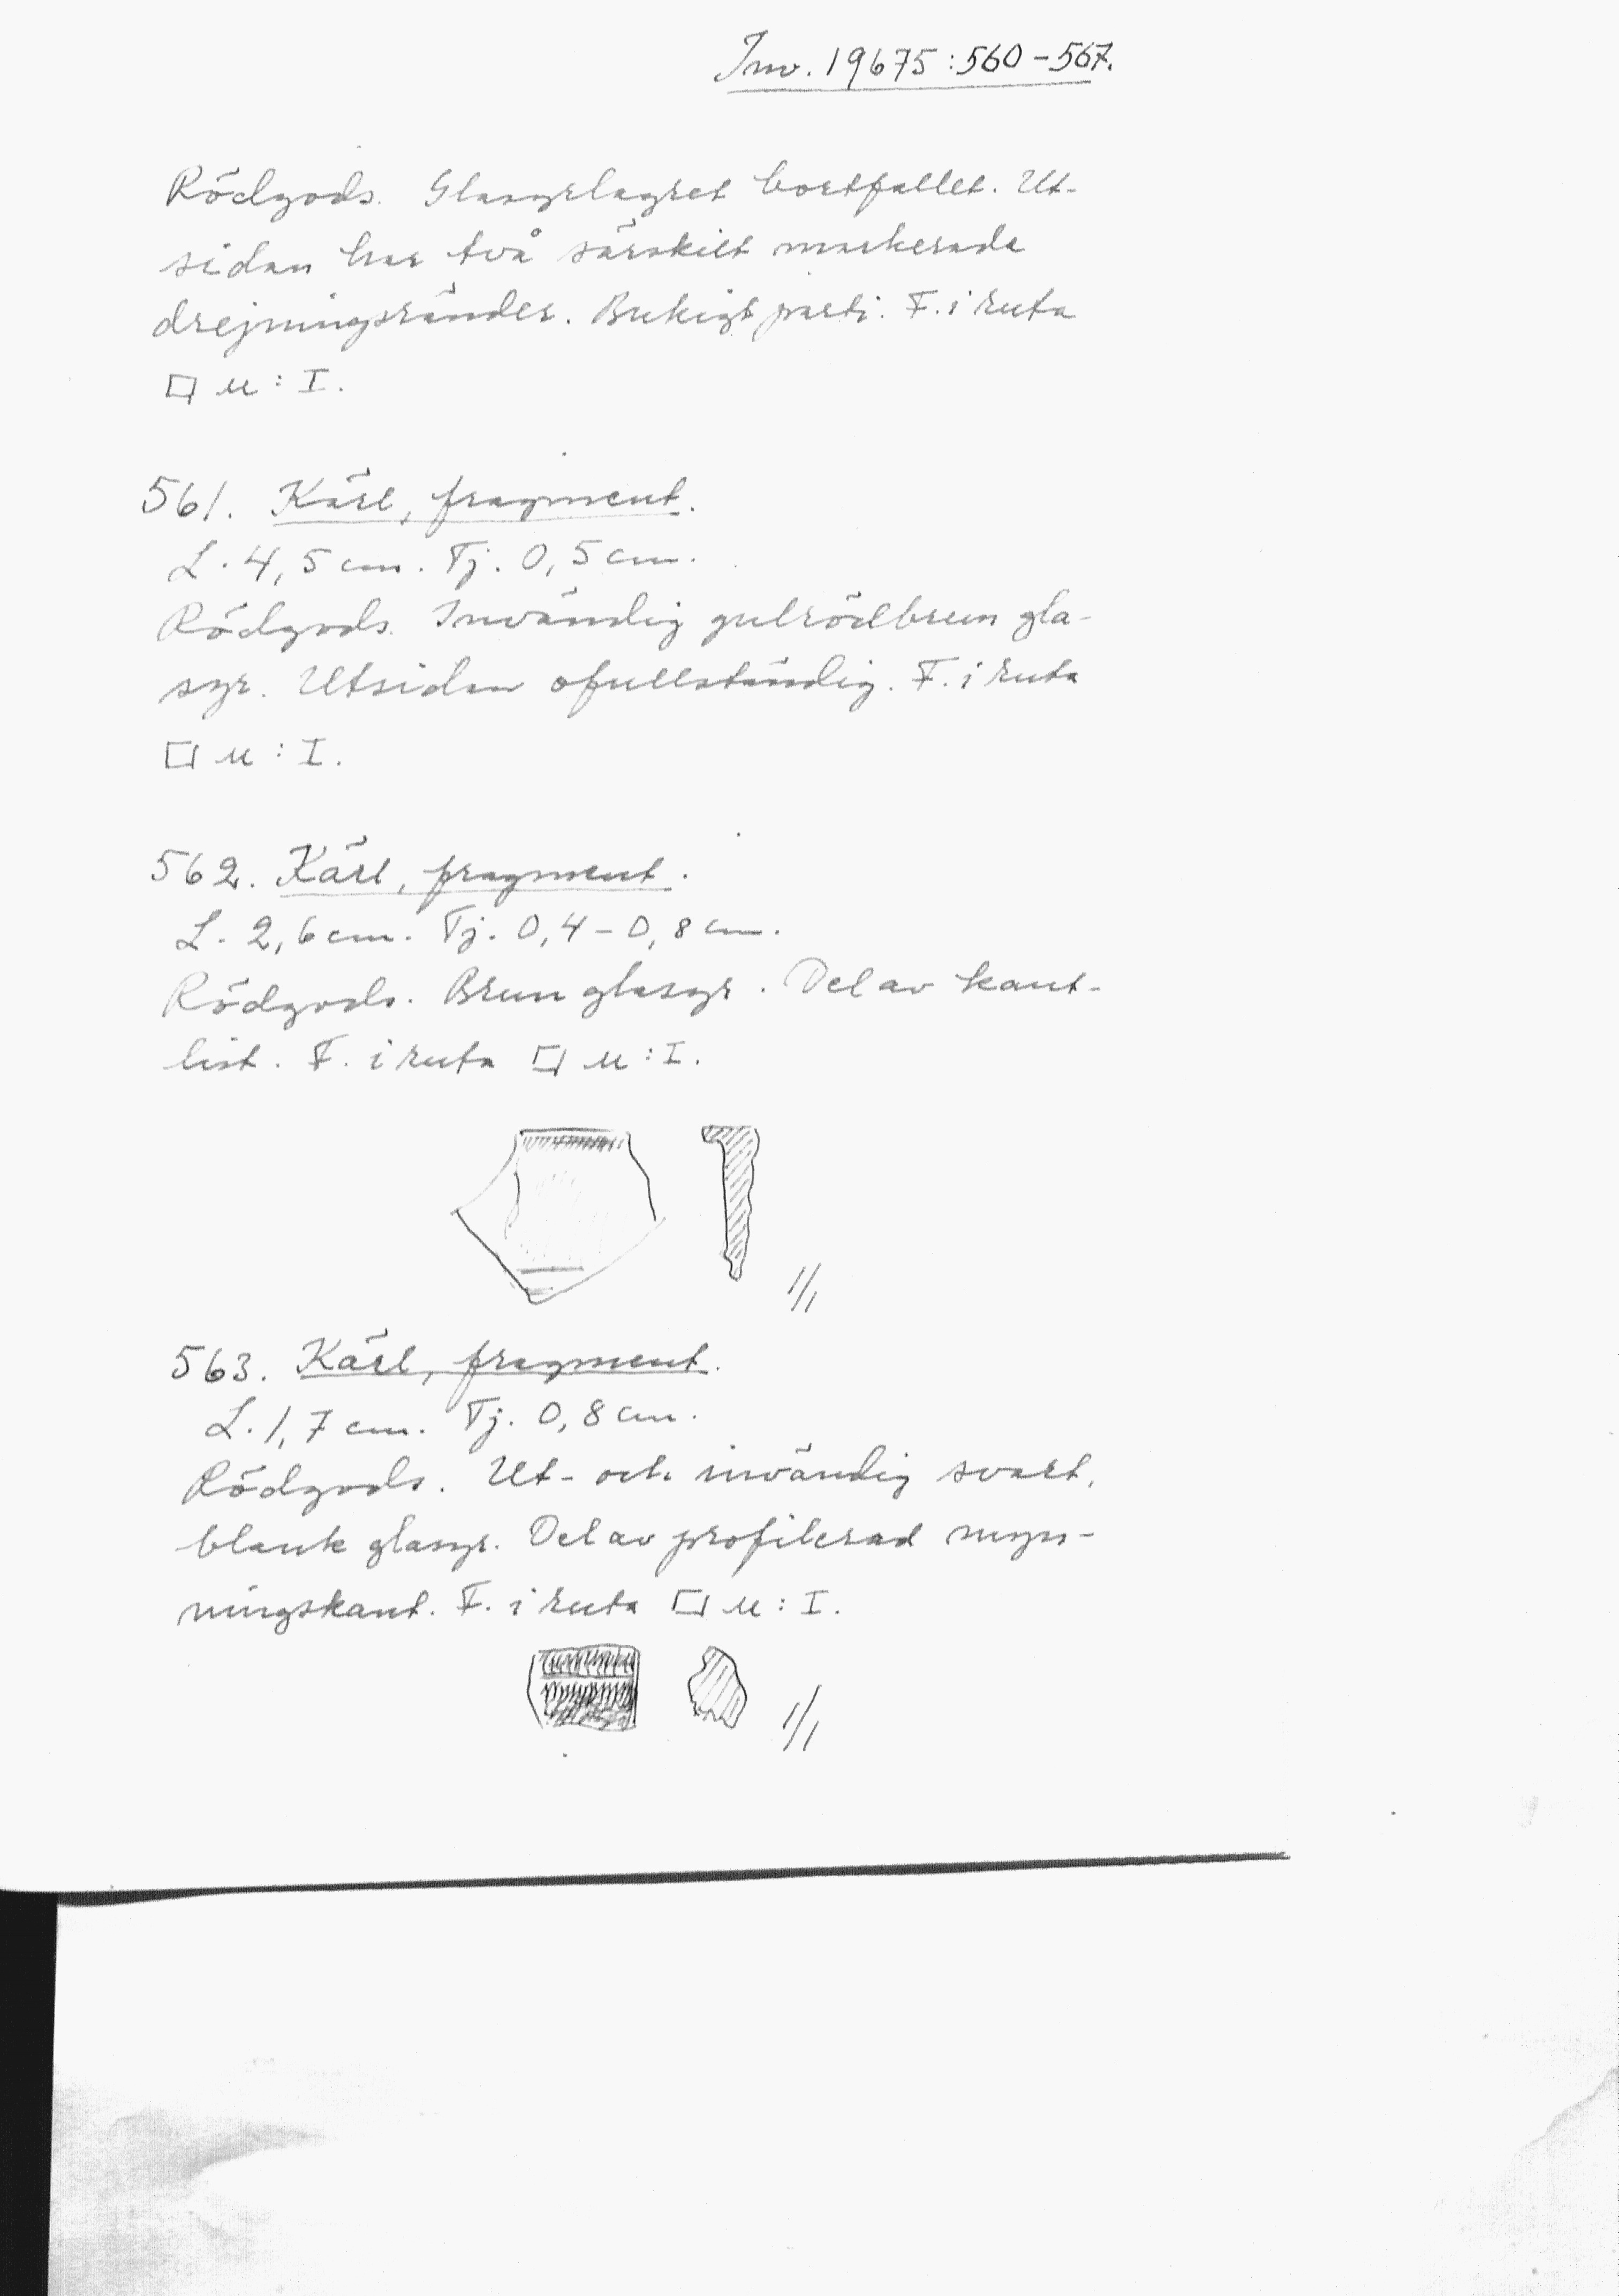 Inv. 19675:560-567.
Rödgods. Glasyrlagret bortfallet. Ut-
sidan har två särskilt markerade
drejningsränder. Bukigt parti. F. i ruta
□ u : I.
561. Kärl, fragment.
L. 4,5 cm. Tj. 0,5 cm.
Rödgods. Invändig gulrödbrun gla-
syr. Utsidan ofullständig. F. i ruta
□ u : I.
562. Kärl, fragment.
L. 2,6 cm. Tj. 0,4-0,8 cm.
Rödgods. Brun glasyr. Del av kant-
list. F. i ruta □ u : I.
1/1
563. Kärl, fragment.
L. 1,7 cm. Tj. 0,8 cm.
Rödgods. Ut- och invändig svart,
blank glasyr. Del av profilerad myn-
ningskant. F. i ruta □ u : I.
1/1